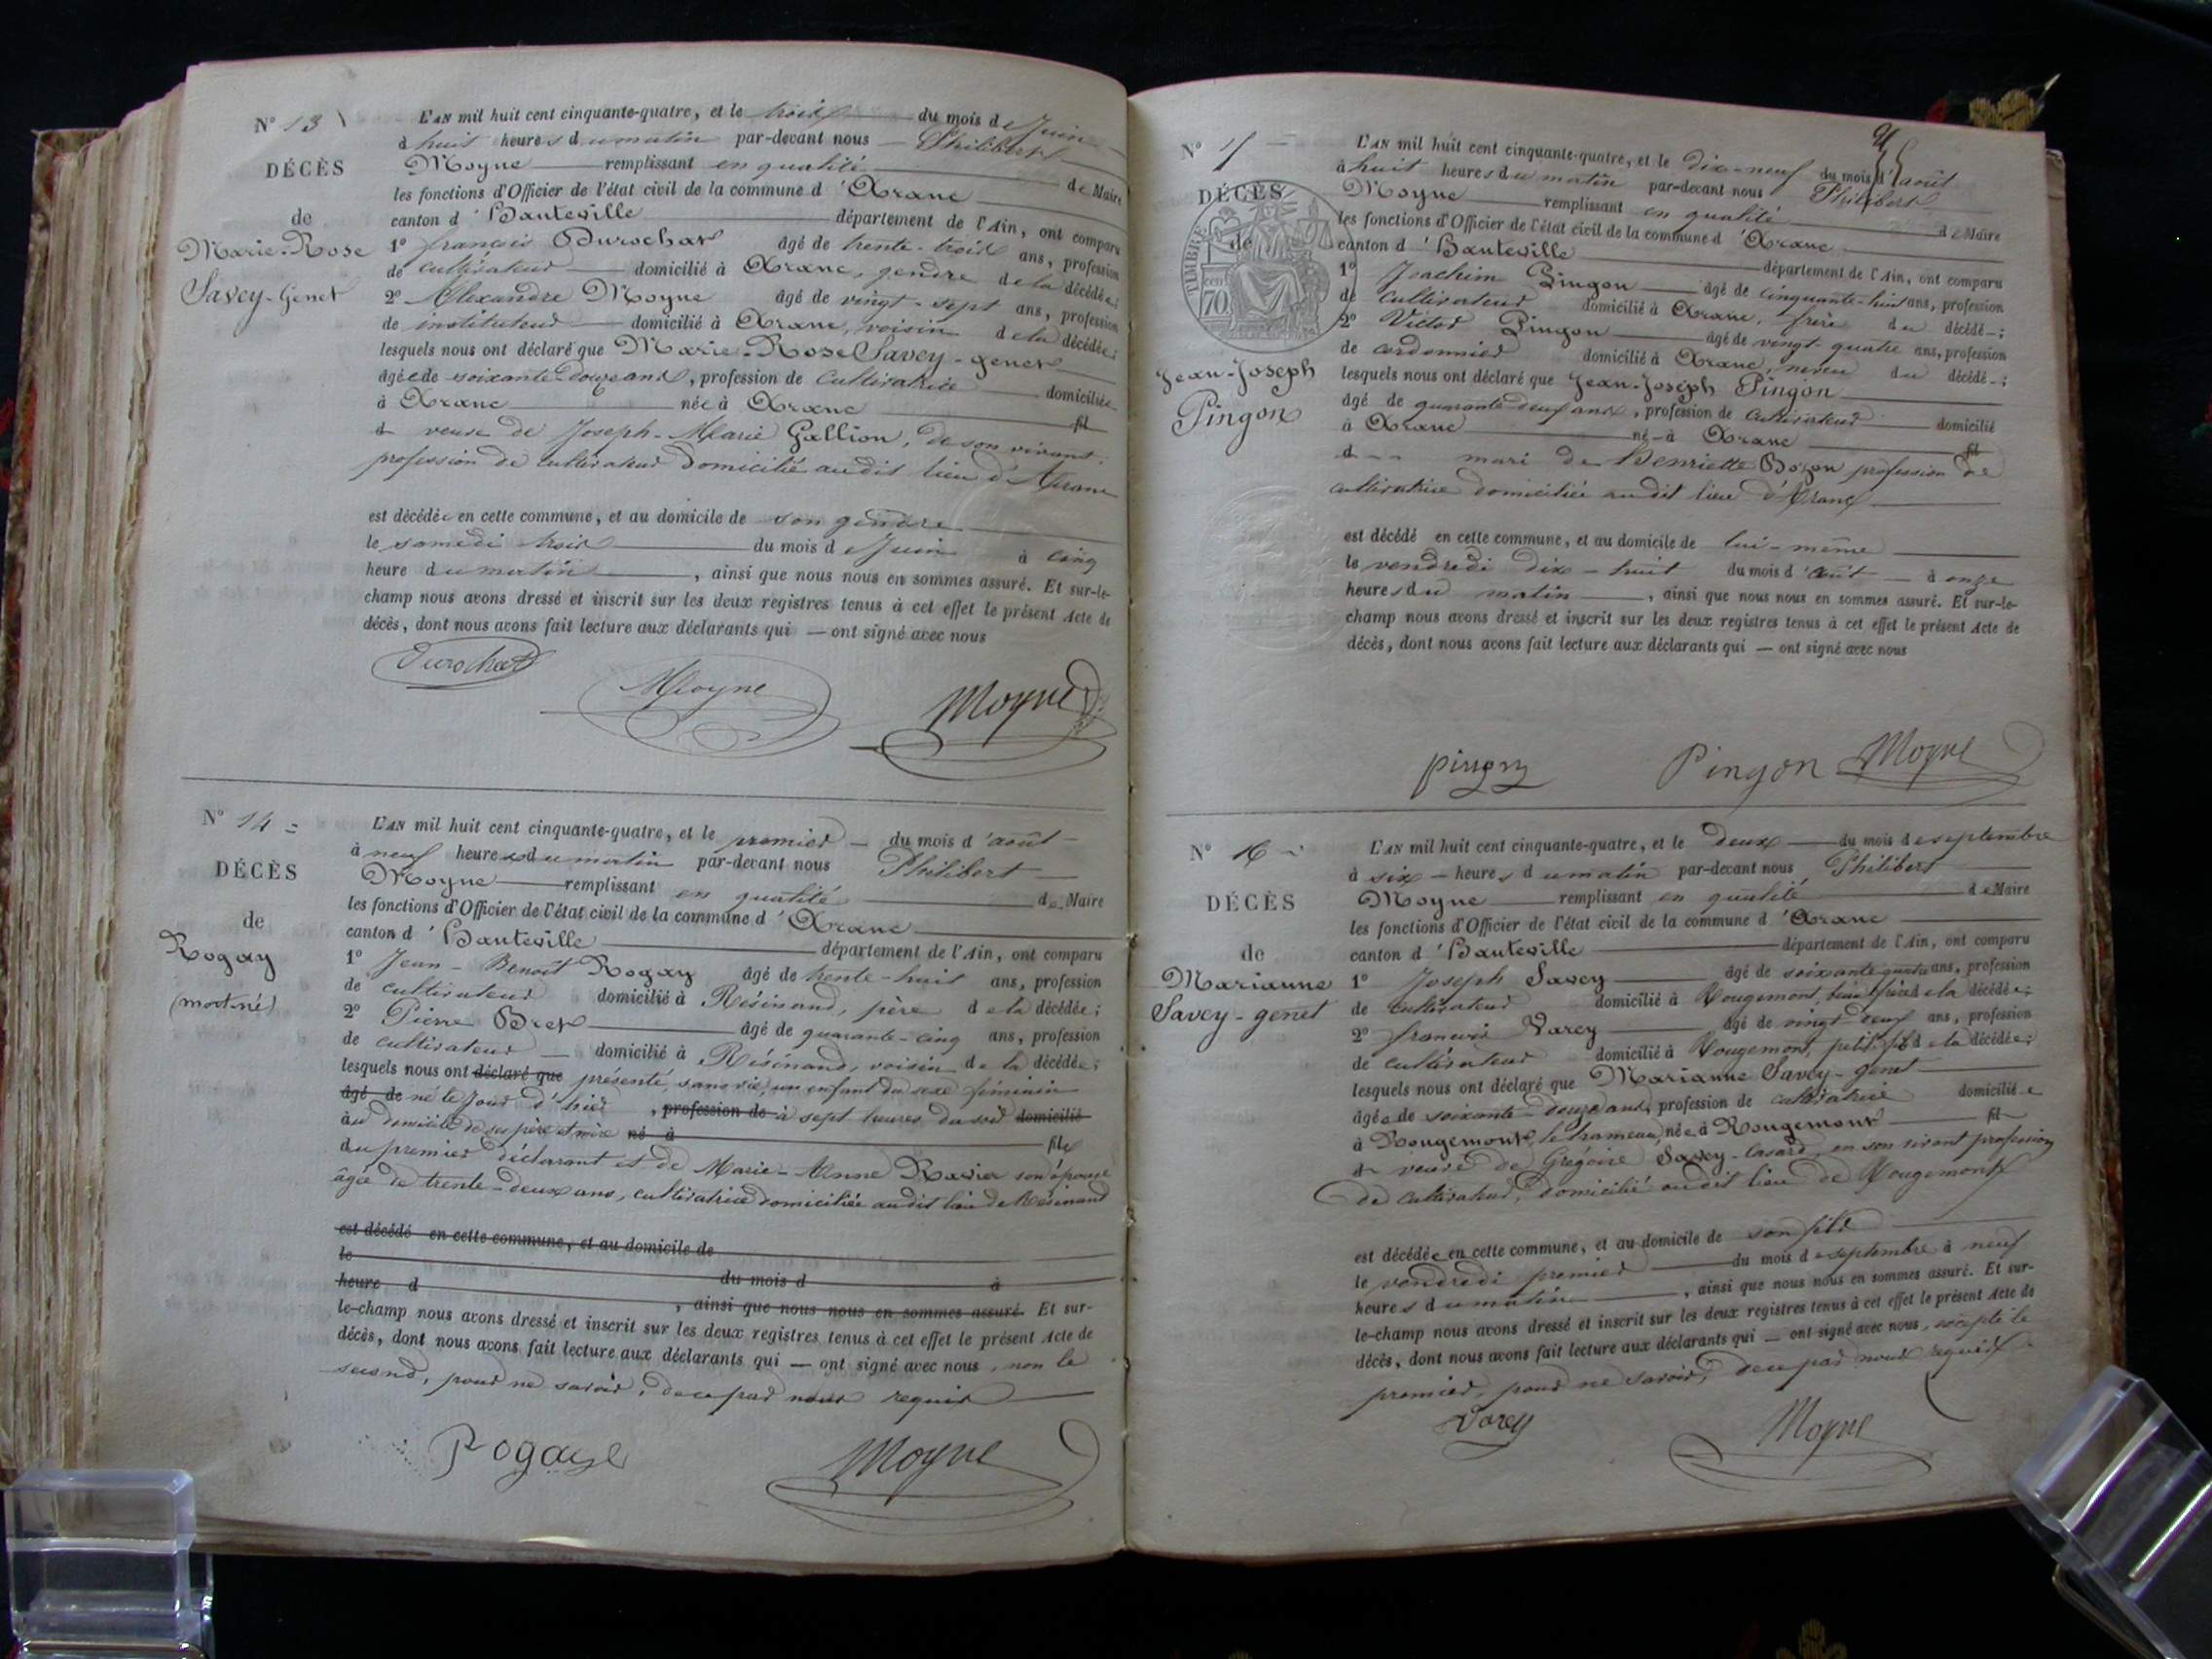 N° 13
DÉCÈS
de
Marie-Rose
Savey-Genet
L'AN mil huit cent cinquante-quatre, et le trois du mois de Juin
à huit heures du matin par-devant nous Philibert
Moyne remplissant en qualité de Maire
les fonctions d'Officier de l'état civil de la commune d'Aranc
canton d'Hauteville département de l'Ain, ont comparu
1° françois Durochat âgé de trente-trois ans, profession
de cultivateur domicilié à Aranc, gendre de la décédée;
2° Alexandre Moyne âgé de vingt-sept ans, profession
de instituteur domicilié à Aranc, voisin de la décédée;
lesquels nous ont déclaré que Marie-Rose Savey-genet
âgée de soixante-douze ans, profession de cultivatrice domiciliée
à Aranc née à Aranc fil
d veuve de Joseph-Marie Gallion, de son vivant
profession de cultivateur domicilié audit lieu d'Aranc
est décédée en cette commune, et au domicile de son gendre
le samedi trois du mois de Juin à cinq
heure du matin, ainsi que nous nous en sommes assuré. Et sur-le-
champ nous avons dressé et inscrit sur les deux registres tenus à cet effet le présent Acte de
décès, dont nous avons fait lecture aux déclarants qui — ont signé avec nous
Durochat
AMoyne
Moyne
N° 14
DÉCÈS
de
Rogay
(mort-né)
L'AN mil huit cent cinquante-quatre, et le premier du mois d'août
à neuf heures du matin par-devant nous Philibert
Moyne remplissant en qualité de Maire
les fonctions d'Officier de l'état civil de la commune d'Aranc
canton d'Hauteville département de l'Ain, ont comparu
1° Jean-Benoît Rogay âgé de trente-huit ans, profession
de cultivateur domicilié à Résinand, père de la décédée;
2° Pierre Bret âgé de quarante-cinq ans, profession
de cultivateur domicilié à Résinand, voisin de la décédée;
lesquels nous ont déclaré que présenté, sans vie, un enfant du sexe féminin
âgé de né le jour d'hier, profession de à sept heures du soir domicilié
au domicile de ses père et mère né à fille
du premier déclarant et de Marie-Anne Ravier son épouse
âgée de trente-deux ans, cultivatrice domiciliée audit lieu de Résinand
est décédé en cette commune, et au domicile de
le du mois d à
heure d, ainsi que nous nous en sommes assuré. Et sur-
le-champ nous avons dressé et inscrit sur les deux registres tenus à cet effet le présent Acte de
décès, dont nous avons fait lecture aux déclarants qui — ont signé avec nous, non le
second, pour ne savoir, de ce par nous requis
Rogay
Moyne
DÉCÈS
de
TIMBRE
70
Jean-Joseph
Pingon
L'AN mil huit cent cinquante-quatre, et le dix-neuf du mois d'août
à huit heures du matin par-devant nous Philibert
Moyne remplissant en qualité de Maire
les fonctions d'Officier de l'état civil de la commune d'Aranc
canton d'Hauteville département de l'Ain, ont comparu
1° Joachim Pingon âgé de cinquante-huit ans, profession
de cultivateur domicilié à Aranc, frère du décédé;
2° Victor Pingon âgé de vingt-quatre ans, profession
de cordonnier domicilié à Aranc, neveu du décédé;
lesquels nous ont déclaré que Jean-Joseph Pingon
âgé de quarante-neuf ans, profession de cultivateur domicilié
à Aranc né à Aranc fil
d mari de Henriette Bozon profession de
cultivatrice domiciliée audit lieu d'Aranc
est décédé en cette commune, et au domicile de lui-même
le vendredi dix-huit du mois d'août à onze
heures du matin, ainsi que nous nous en sommes assuré. Et sur-le-
champ nous avons dressé et inscrit sur les deux registres tenus à cet effet le présent Acte de
décès, dont nous avons fait lecture aux déclarants qui — ont signé avec nous
pingon
Pingon
Moyne
N° 16
DÉCÈS
de
Marianne
Savey-genet
L'AN mil huit cent cinquante-quatre, et le deux du mois de septembre
à six heures du matin par-devant nous Philibert
Moyne remplissant en qualité de Maire
les fonctions d'Officier de l'état civil de la commune d'Aranc
canton d'Hauteville département de l'Ain, ont comparu
1° Joseph Savey âgé de soixante quatre ans, profession
de cultivateur domicilié à Rougemont, beau frère de la décédée;
2° françois Varey âgé de vingt neuf ans, profession
de cultivateur domicilié à Rougemont, petit fils de la décédée;
lesquels nous ont déclaré que Marianne Savey-genet
âgée de soixante-douze ans, profession de cultivatrice domiciliée
à Rougemont, le hameau, née à Rougemont fil
d veuve de Grégoire Savey-Casard, en son vivant profession
de cultivateur, domicilié audit lieu de Rougemont
est décédée en cette commune, et au domicile de son fils
le vendredi premier du mois de septembre à neuf
heures du matin, ainsi que nous nous en sommes assuré. Et sur-
le-champ nous avons dressé et inscrit sur les deux registres tenus à cet effet le présent Acte de
décès, dont nous avons fait lecture aux déclarants qui — ont signé avec nous, excepté le
premier, pour ne savoir, de ce par nous requis
Varey
Moyne